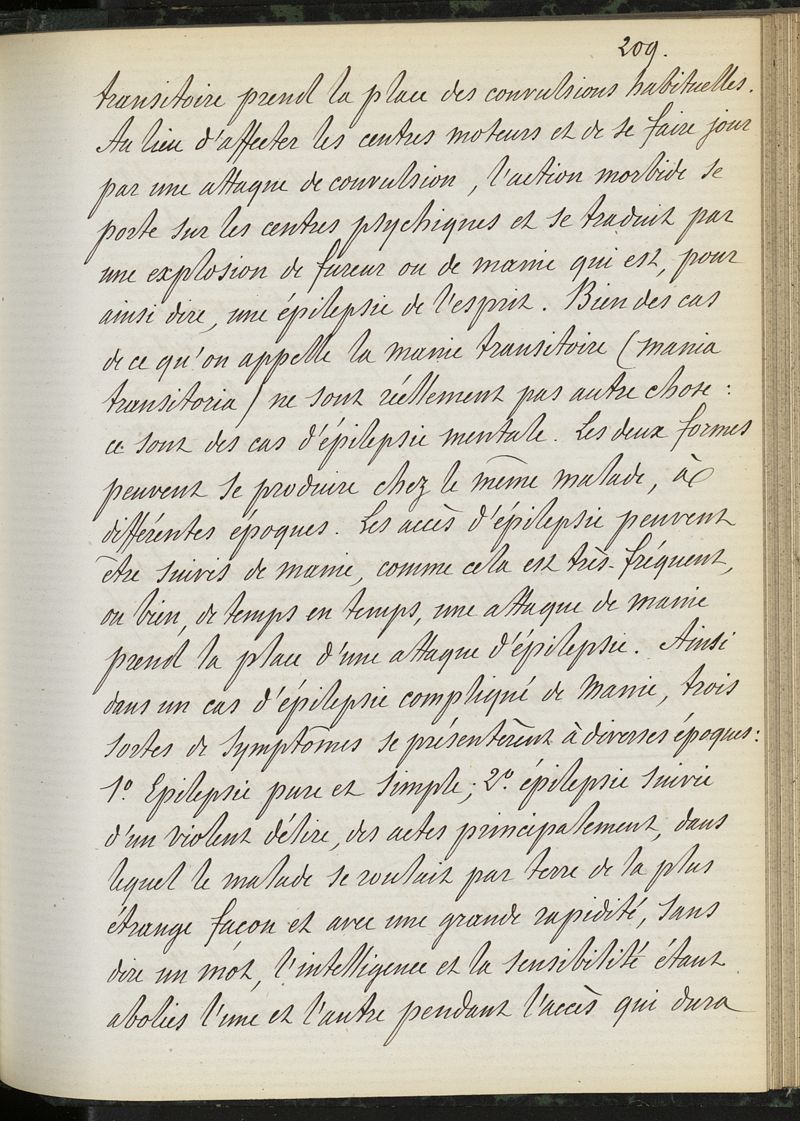 209.
transitoire prend la place des convulsions habituelles.
Au lieu d'affecter les centres moteurs et de se faire jour
par une attaque de convulsion, l'action morbide se
porte sur les centres psychiques et se traduit par
une explosion de fureur ou de manie qui est, pour
ainsi dire, une épilepsie de l'esprit. Bien des cas
de ce qu'on appelle la manie transitoire (mania
transitoria) ne sont réellement pas autre chose :
ce sont des cas d'épilepsie mentale. Les deux formes
peuvent se produire chez le même malade, à
différentes époques. Les accès d'épilepsie peuvent
être suivis de manie, comme cela est très-fréquent,
ou bien, de temps en temps, une attaque de manie
prend la place d'une attaque d'épilepsie. Ainsi
dans un cas d'épilepsie compliqué de manie, trois
sortes de symptômes se présentèrent à diverses époques :
1º. Epilepsie pure et simple ; 2º. épilepsie suivie
d'un violent délire, des actes principalement, dans
lequel le malade se roulait par terre de la plus
étrange façon et avec une grande rapidité, sans
dire un mot, l'intelligence et la sensibilité étant
abolies l'une et l'autre pendant l'accès qui dura